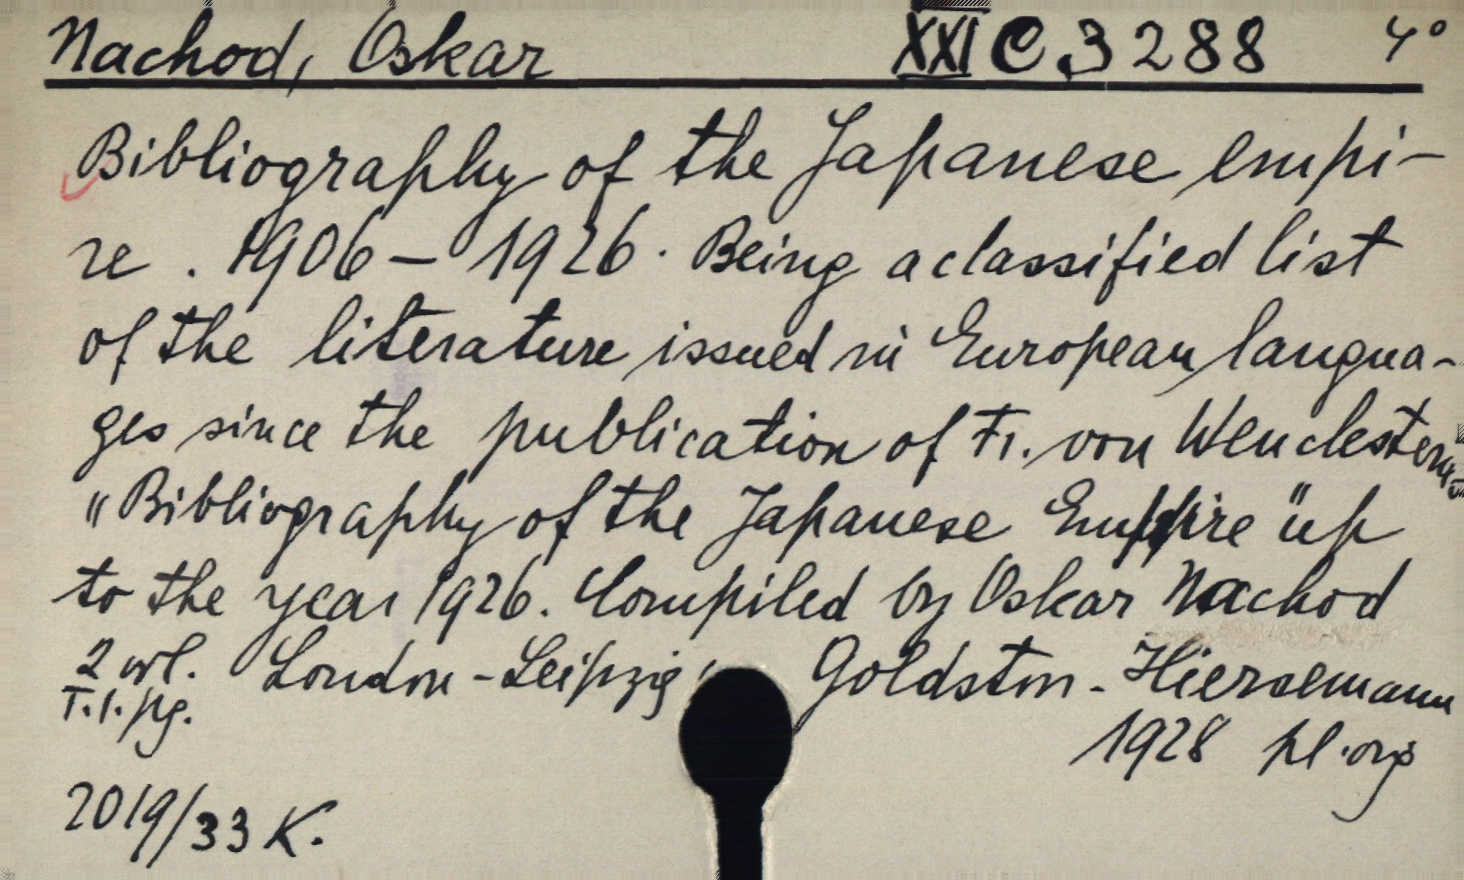 Nachod, Oskar XXI C 3288 4°
Bibliography of the Japanese empi-
re. 1906-1926. Being a classified list
of the literature issued in European langua-
ges since the publication of Fr. von Wenckstern
"Bibliography of the Japanese Empire" up
to the year 1926. Compiled by Oskar Nachod
2 vol. London-Leipzig Goldston-Hiersemann
T.1. pg.
1928 pl. org
2019/33 K.